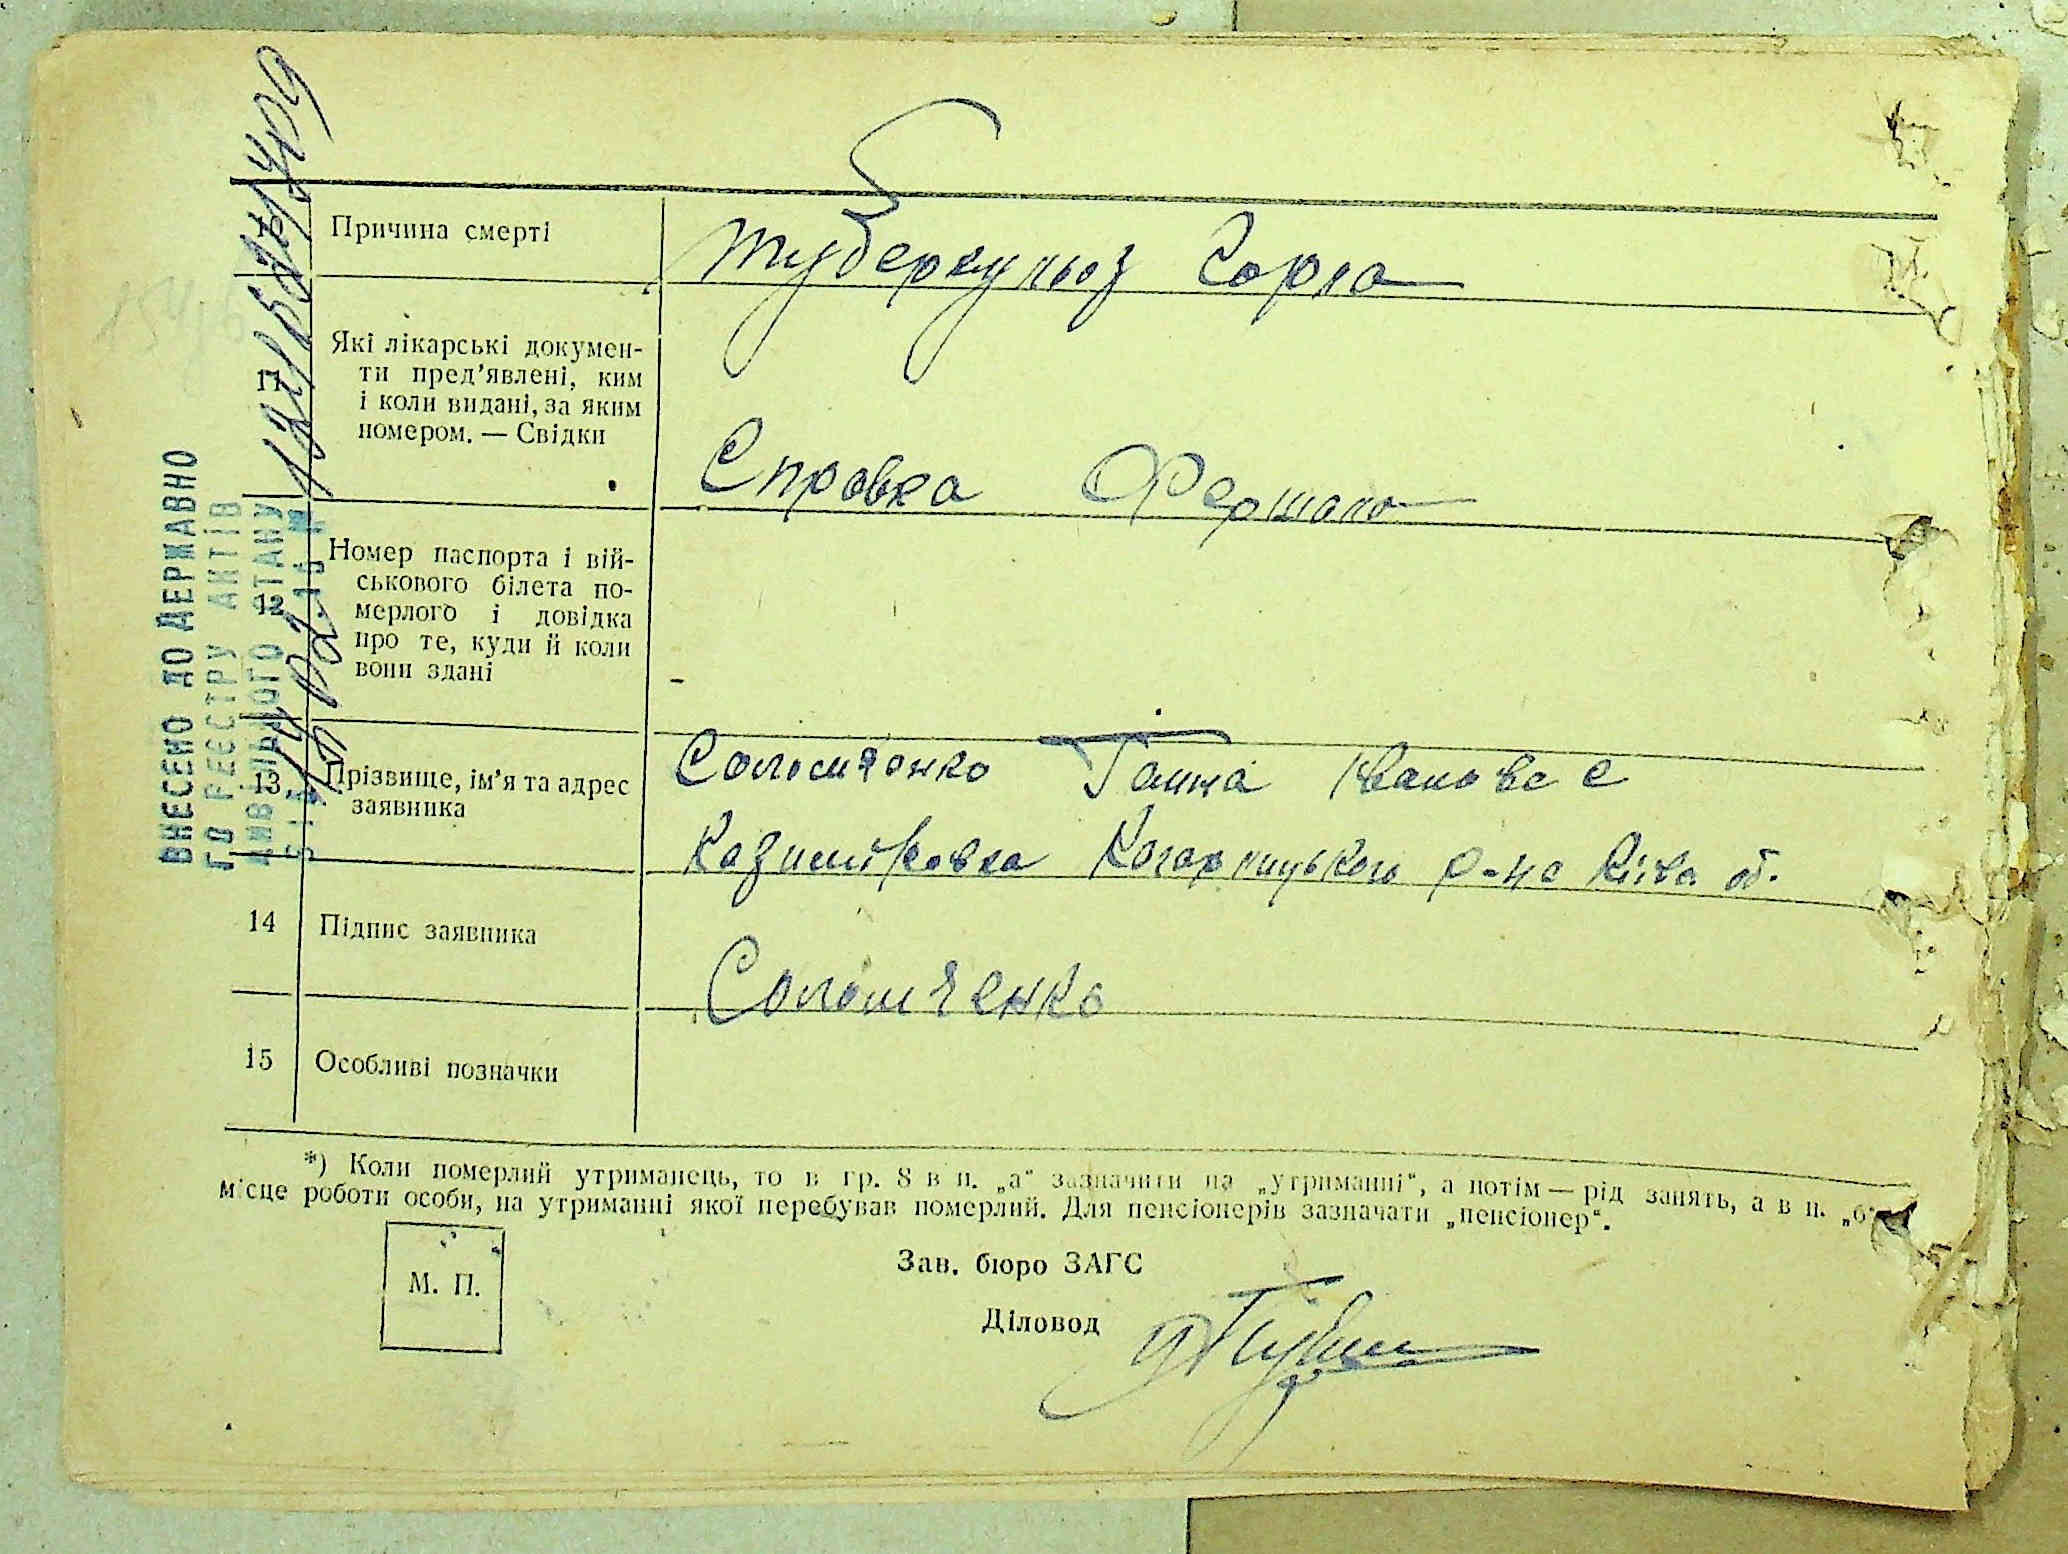 10 Причина смерті
туберкульоз Горла
11 Які лікарські докумен-
ти пред'явлені, ким
і коли видані, за яким
номером. — Свідки
Справка Фершала
12 Номер паспорта і вій-
ськового білета по-
мерлого і довідка
про те, куди й коли
вони здані
-
13 Прізвище, ім'я та адрес
заявника
Соломченко Ганна Іванове
Казимировка Кагарлицького р-на Київ. об.
14 Підпис заявника
Соломченко
15 Особливі позначки
*) Коли померлий утриманець, то в гр. 8 в п. „а“ зазначити на „утриманні“, а потім — рід занять, а в п. „б“
місце роботи особи, на утриманні якої перебував померлий. Для пенсіонерів зазначати „пенсіонер“.
М. П.
Зав. бюро ЗАГС
Діловод
ВНЕСЕНО ДО ДЕРЖАВНО
ГО РЕЄСТРУ АКТІВ
ЦИВІЛЬНОГО СТАНУ